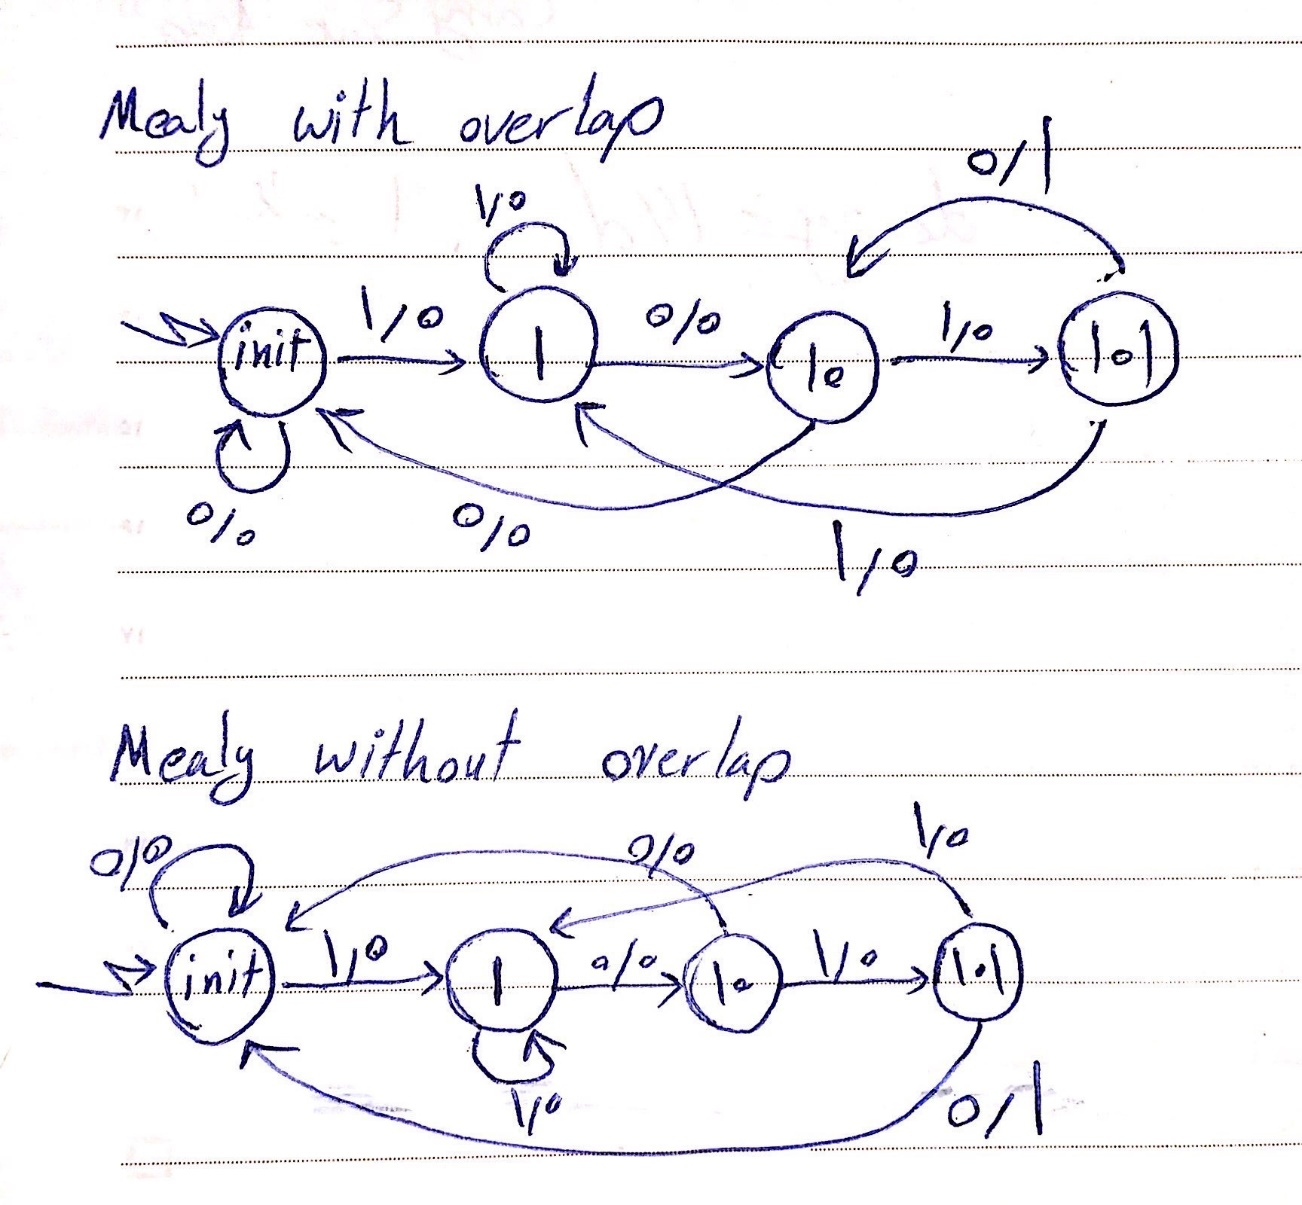 Mealy with overlap
0/1
1/0
init 1/0 1 0/0 10 1/0 101
0/0 0/0 1/0
Mealy without overlap
0/0 0/0 1/0
init 1/0 1 0/0 10 1/0 101
1/0 0/1